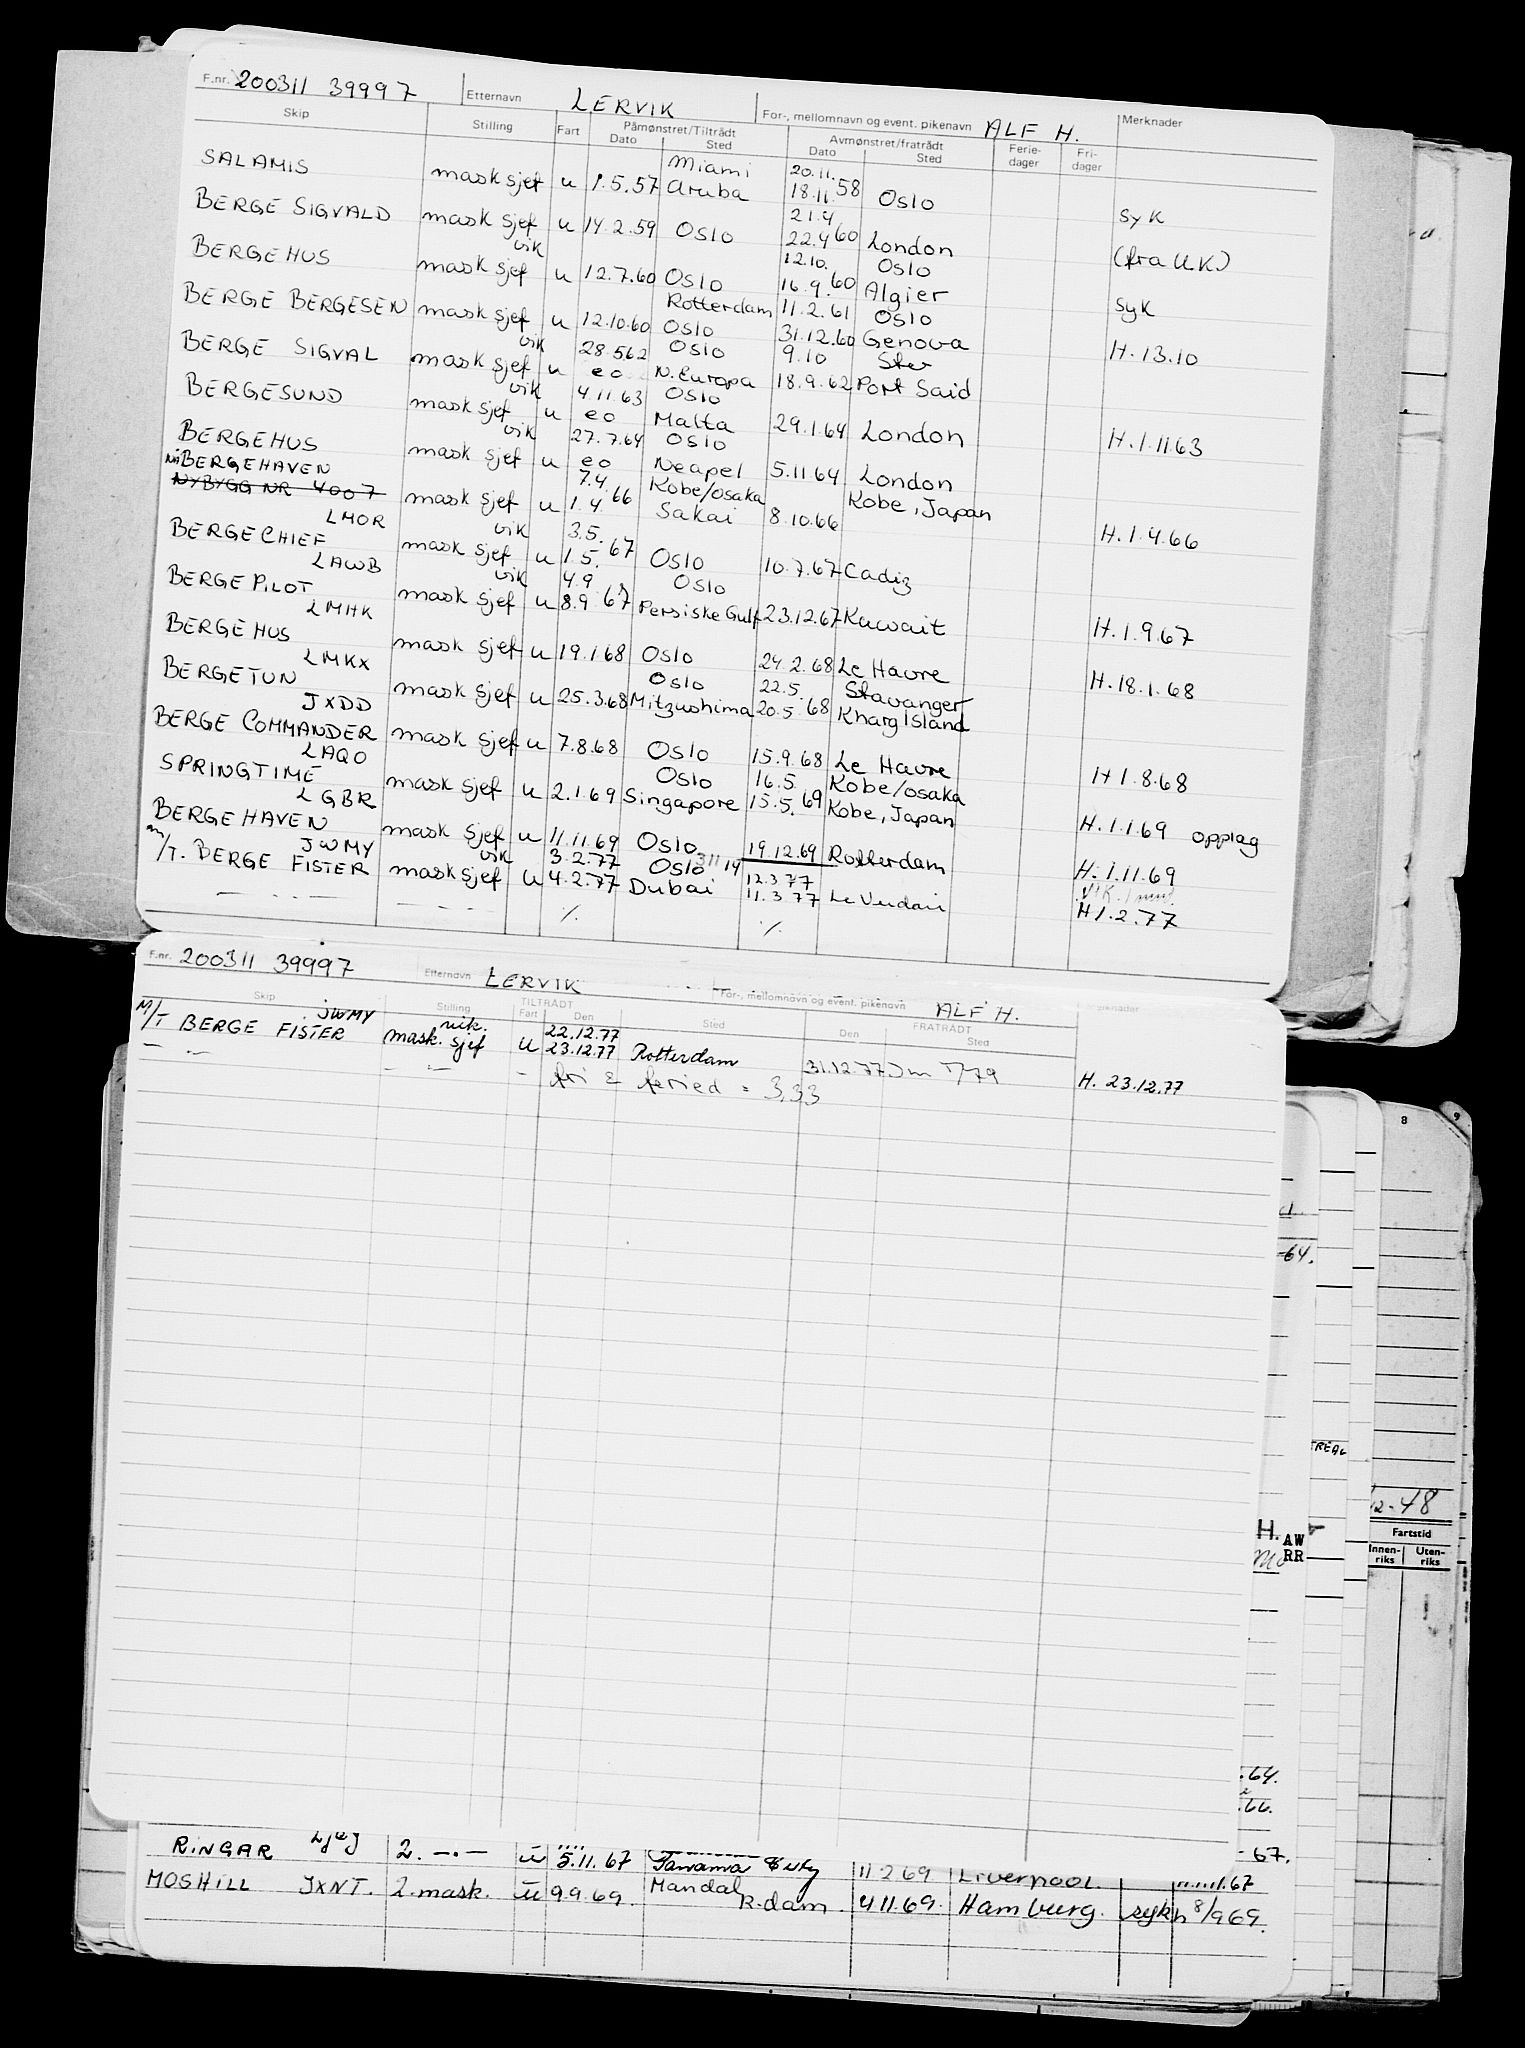 F.nr. 200311 39997 Etternavn LERVIK For-, mellomnavn og event. pikenavn ALF H. Merknader
Skip Stilling Fart Påmønstret/Tiltrådt Dato Sted Avmønstret/fratrådt Dato Sted Ferie-dager Fri-dager
SALAMIS mask sjef u 1.5.57 Miami Aruba 20.11. 18.11.58 Oslo syk
BERGE SIGVALD mask sjef u 14.2.59 Oslo 21.4 22.4 60 London Oslo (fra U.K.)
BERGEHUS vik mask sjef u 12.7.60 Oslo 12.10. 16.9.60 Algier syk
BERGE BERGESEN mask sjef u 12.10.60 Rotterdam Oslo 11.2.61 31.12.60 Oslo Genova H. 13.10
BERGE SIGVAL vik mask sjef u 28.5.62 eo Oslo N. Europa 9.10 18.9.62 Port Said
BERGESUND vik mask sjef u 4.11.63 eo Oslo Malta 29.1.64 London H. 1.11.63
BERGEHUS vik mask sjef u 27.7.64 eo Oslo Neapel 5.11 64 London
nå BERGEHAVEN
NYBYGG NR 4007 LMOR mask sjef u 7.4 1.4. 66 Kobe/Osaka Sakai 8.10.66 Kobe, Japan H. 1.4.66
BERGECHIEF LAWB vik mask sjef u 3.5. 1.5. 67 Oslo 10.7.67 Cadiz
BERGE PILOT LMHK vik mask sjef u 4.9 8.9 67 Oslo Persiske Gulf 23.12.67 Kuwait H. 1.9.67
BERGEHUS LMKX mask sjef u 19.1.68 Oslo 24.2.68 Le Havre H. 18.1.68
BERGETUN JXDD mask sjef u 25.3.68 Oslo Mitzushima 22.5. 20.5.68 Stavanger Kharg Island
BERGE COMMANDER LAQO mask sjef u 7.8.68 Oslo 15.9.68 Le Havre H 1.8.68
SPRINGTIME LGBR mask sjef u 2.1.69 Oslo Singapore 16.5. 15.5.69 Kobe/Osaka Kobe, Japan H. 1.1.69 opplag
BERGEHAVEN JWMY mask sjef u 11.11.69 Oslo 19.12.69 Rotterdam H. 1.11.69
M/T. BERGE FISTER vik mask sjef u 3.2.77 4.2.77 Oslo Dubai 12.3.77 11.3.77 H 1.2.77
F.nr. 200311 39997 Etternavn LERVIK For-, mellomnavn og event. pikenavn ALF H. Merknader
Skip Stilling TILTRÅDT Fart Den Sted FRATRÅDT Den Sted
M/T BERGE FISTER JWMY vik. mask. sjef u 22.12.77 23.12.77 Rotterdam 31.12.77 H. 23.12.77
fri & feried = 3,33
8 9
-64.
TREAL
12-48
Fartstid
Innen-riks Uten-riks
H. AW
RR
.64.
.66.
-67.
RINGAR 2. u 5.11.67 11 2 69 Liverpool. 67
MOSHILL JXNT. 2. mask. u 9.9.69. Mandal R.dam. 4 11.69. Hamburg. syk h 8/9 69.